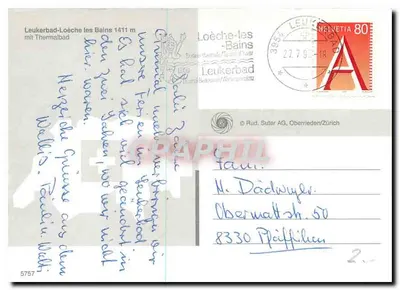 Leukerbad-Loèche les Bains 1411 m
mit Thermalbad
Loèche-les
-Bains
Leukerbad
3954 LEUKERBAD
HELVETIA 80
A
© Rud. Suter AG, Oberrieden/Zürich
einmal mehr verbringen wir
unsere Ferien in Leukerbad
Es hat sich viel geändert in
den zwei Jahren wo wir nicht
hier waren.
Herzliche Grüsse aus dem
Wallis
Fam.
H. Dädwyler
Obermattstr. 50
8330 Pfäffikon
5757
2.-